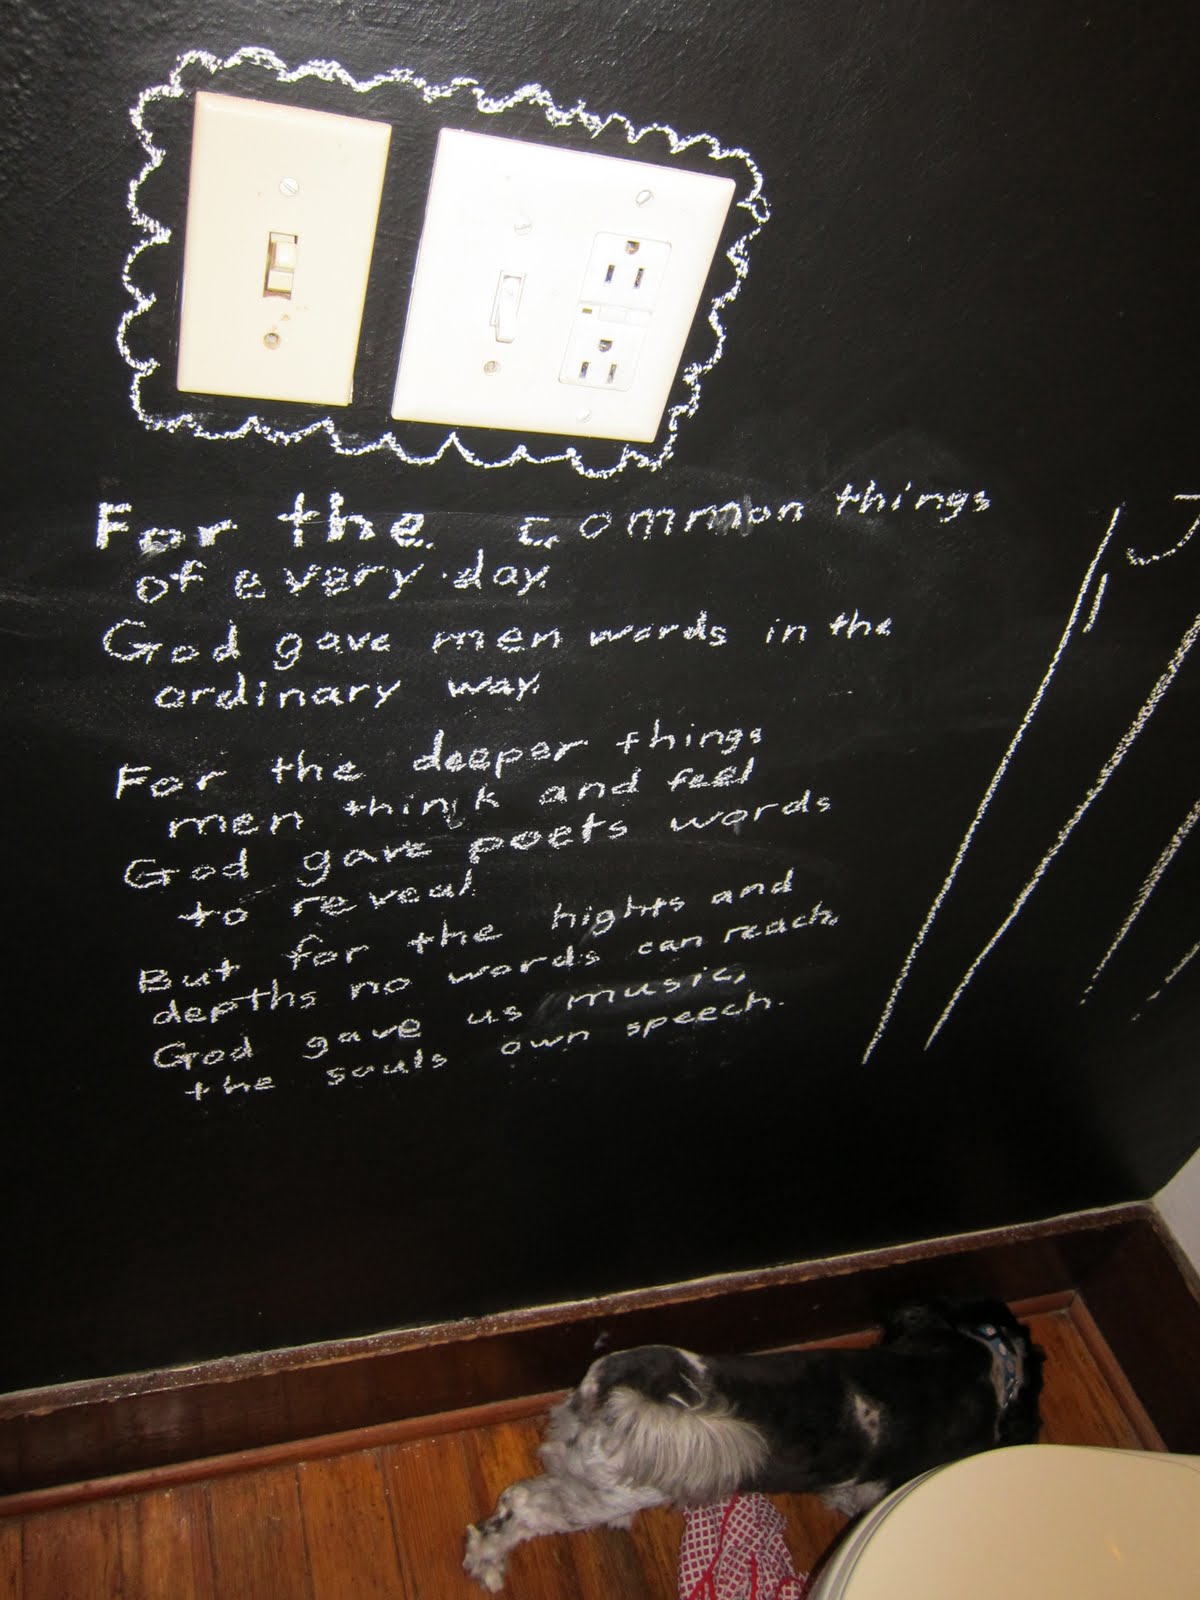 For the common things
of every day.
God gave men words in the
ordinary way.
For the deeper things
men think and feel
God gave poets words
to reveal
But for the hights and
depths no words can reach,
God gave us music,
the souls own speech.